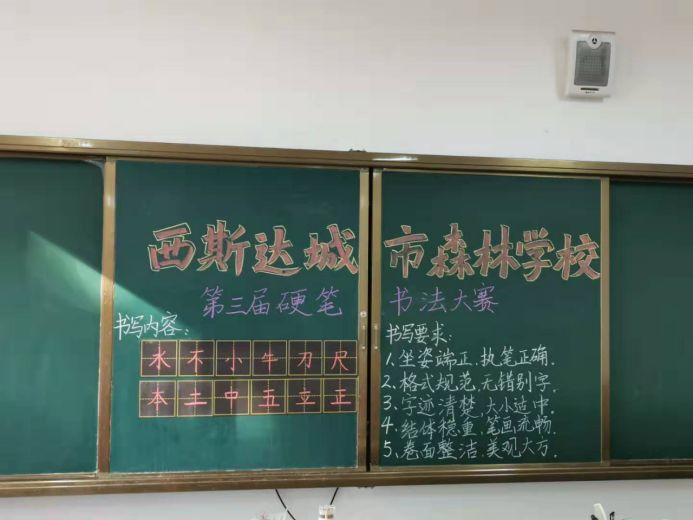 西斯达城市森林学校
第三届硬笔书法大赛
书写内容:
水不小牛刀尺
本土中五立正
书写要求:
1、坐姿端正,执笔正确.
2、格式规范,无错别字.
3、字迹清楚,大小适中.
4、结体稳重,笔画流畅.
5、卷面整洁,美观大方.